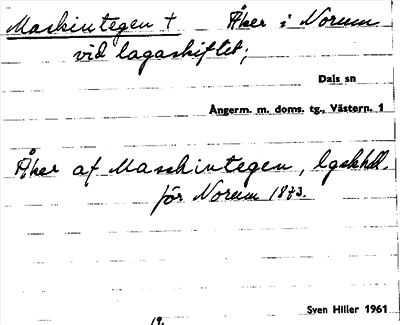 Maskintegen † Åker i Norum
vid lagaskiftet;
Dals sn
Ångerm. m. doms. tg., Västern. 1
Åker af Masskintegen, lgskhdl.
för Norum 1873.
Sven Hiller 1961
19.